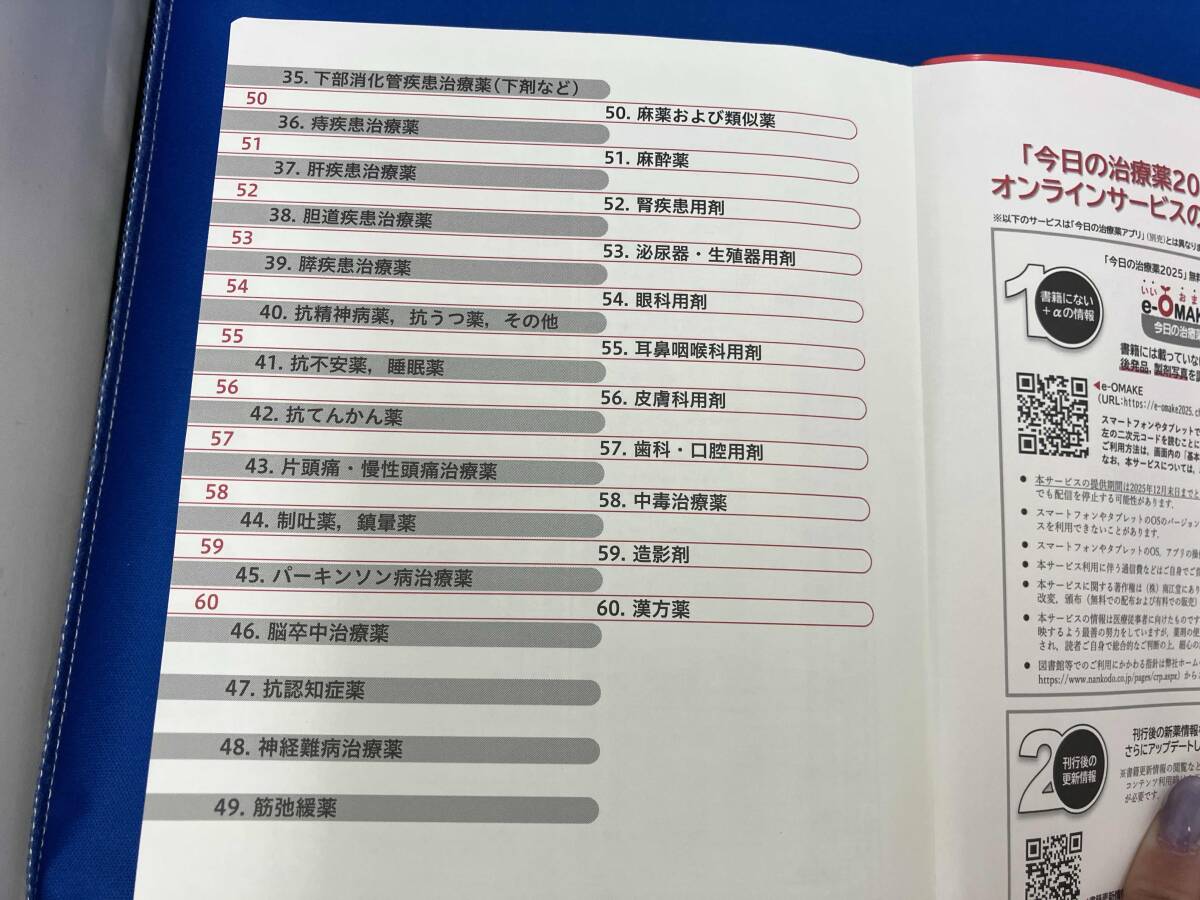 35. 下部消化管疾患治療薬(下剤など)
50
36. 痔疾患治療薬
51
37. 肝疾患治療薬
52
38. 胆道疾患治療薬
53
39. 膵疾患治療薬
54
40. 抗精神病薬，抗うつ薬，その他
55
41. 抗不安薬，睡眠薬
56
42. 抗てんかん薬
57
43. 片頭痛・慢性頭痛治療薬
58
44. 制吐薬，鎮暈薬
59
45. パーキンソン病治療薬
60
46. 脳卒中治療薬
47. 抗認知症薬
48. 神経難病治療薬
49. 筋弛緩薬
50. 麻薬および類似薬
51. 麻酔薬
52. 腎疾患用剤
53. 泌尿器・生殖器用剤
54. 眼科用剤
55. 耳鼻咽喉科用剤
56. 皮膚科用剤
57. 歯科・口腔用剤
58. 中毒治療薬
59. 造影剤
60. 漢方薬
「今日の治療薬20
オンラインサービスの
※以下のサービスは「今日の治療薬アプリ」(別売)とは異なりま
1
書籍にない
+αの情報
「今日の治療薬2025」無
いい おま
e-OMAK
今日の治療
書籍には載っていない
後発品, 製剤写真を
◀e-OMAKE
(URL:https://e-omake2025.c
スマートフォンやタブレットで
左の二次元コードを読むことに
ご利用方法は，画面内の「基本
なお，本サービスについては，
● 本サービスの提供期間は2025年12月末日までと
でも配信を停止する可能性があります．
● スマートフォンやタブレットのOSのバージョン
スを利用できないことがあります．
● スマートフォンやタブレットのOS，アプリの操
● 本サービス利用に伴う通信費などはご自身でご
● 本サービスに関する著作権は（株）南江堂にあり
改変，頒布（無料での配布および有料での販売）
● 本サービスの情報は医療従事者に向けたものです
映するよう最善の努力をしていますが，薬剤の
され，読者ご自身で総合的なご判断の上，細心の
● 図書館等でのご利用にかかわる指針は弊社ホーム
https://www.nankodo.co.jp/pages/crp.aspx）から
2
刊行後の
更新情報
刊行後の新薬情報
さらにアップデートし
※書籍更新情報の閲覧など
コンテンツ利用
が必要です．